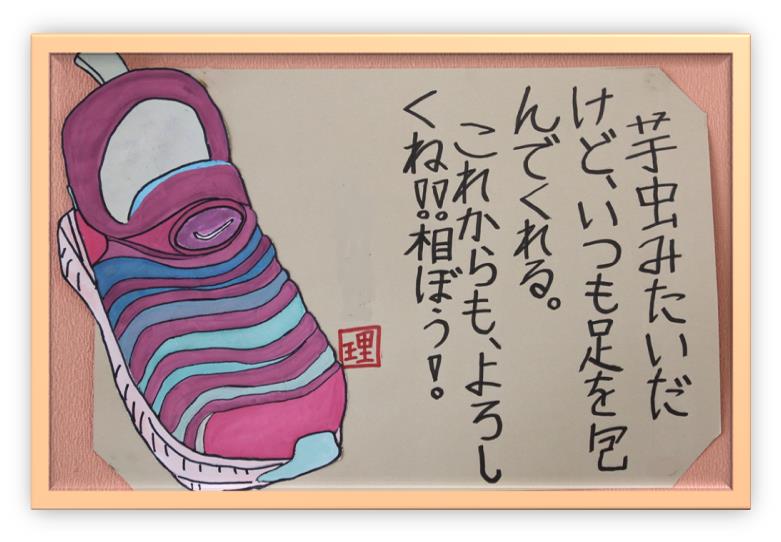 芋虫みたいだ
けど、いつも足を包
んでくれる。
これからも、よろし
くね!!相ぼう!。
理